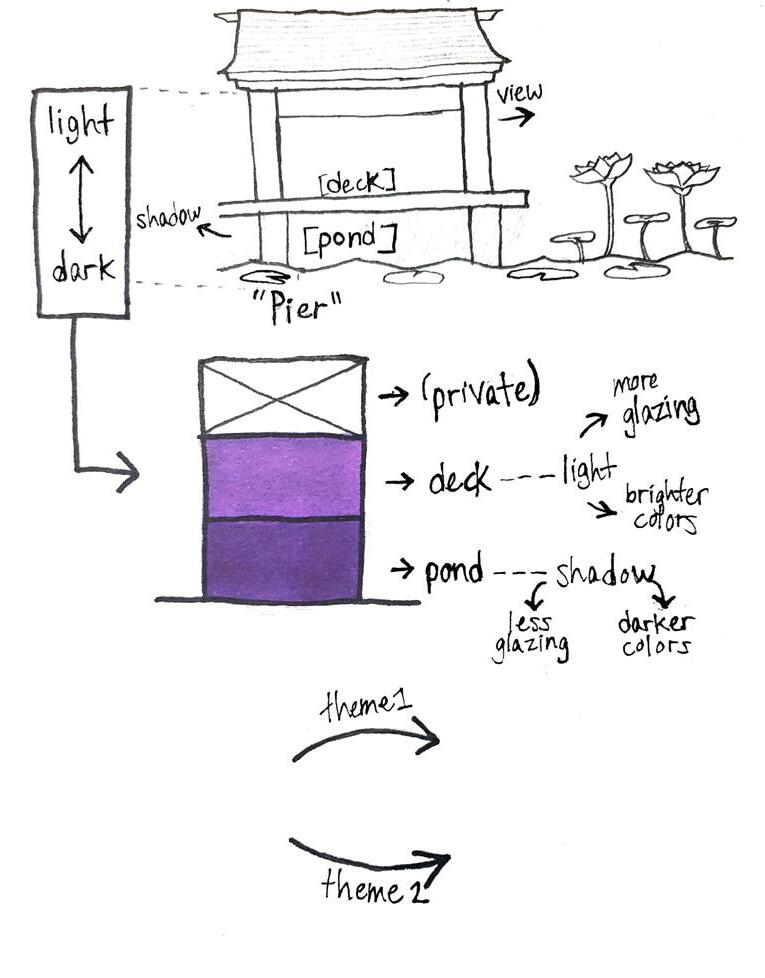 light
dark
view
[deck]
shadow
[pond]
"Pier"
(private)
deck --- light
more
glazing
brighter
colors
pond --- shadow
less
glazing
darker
colors
theme1
theme 2